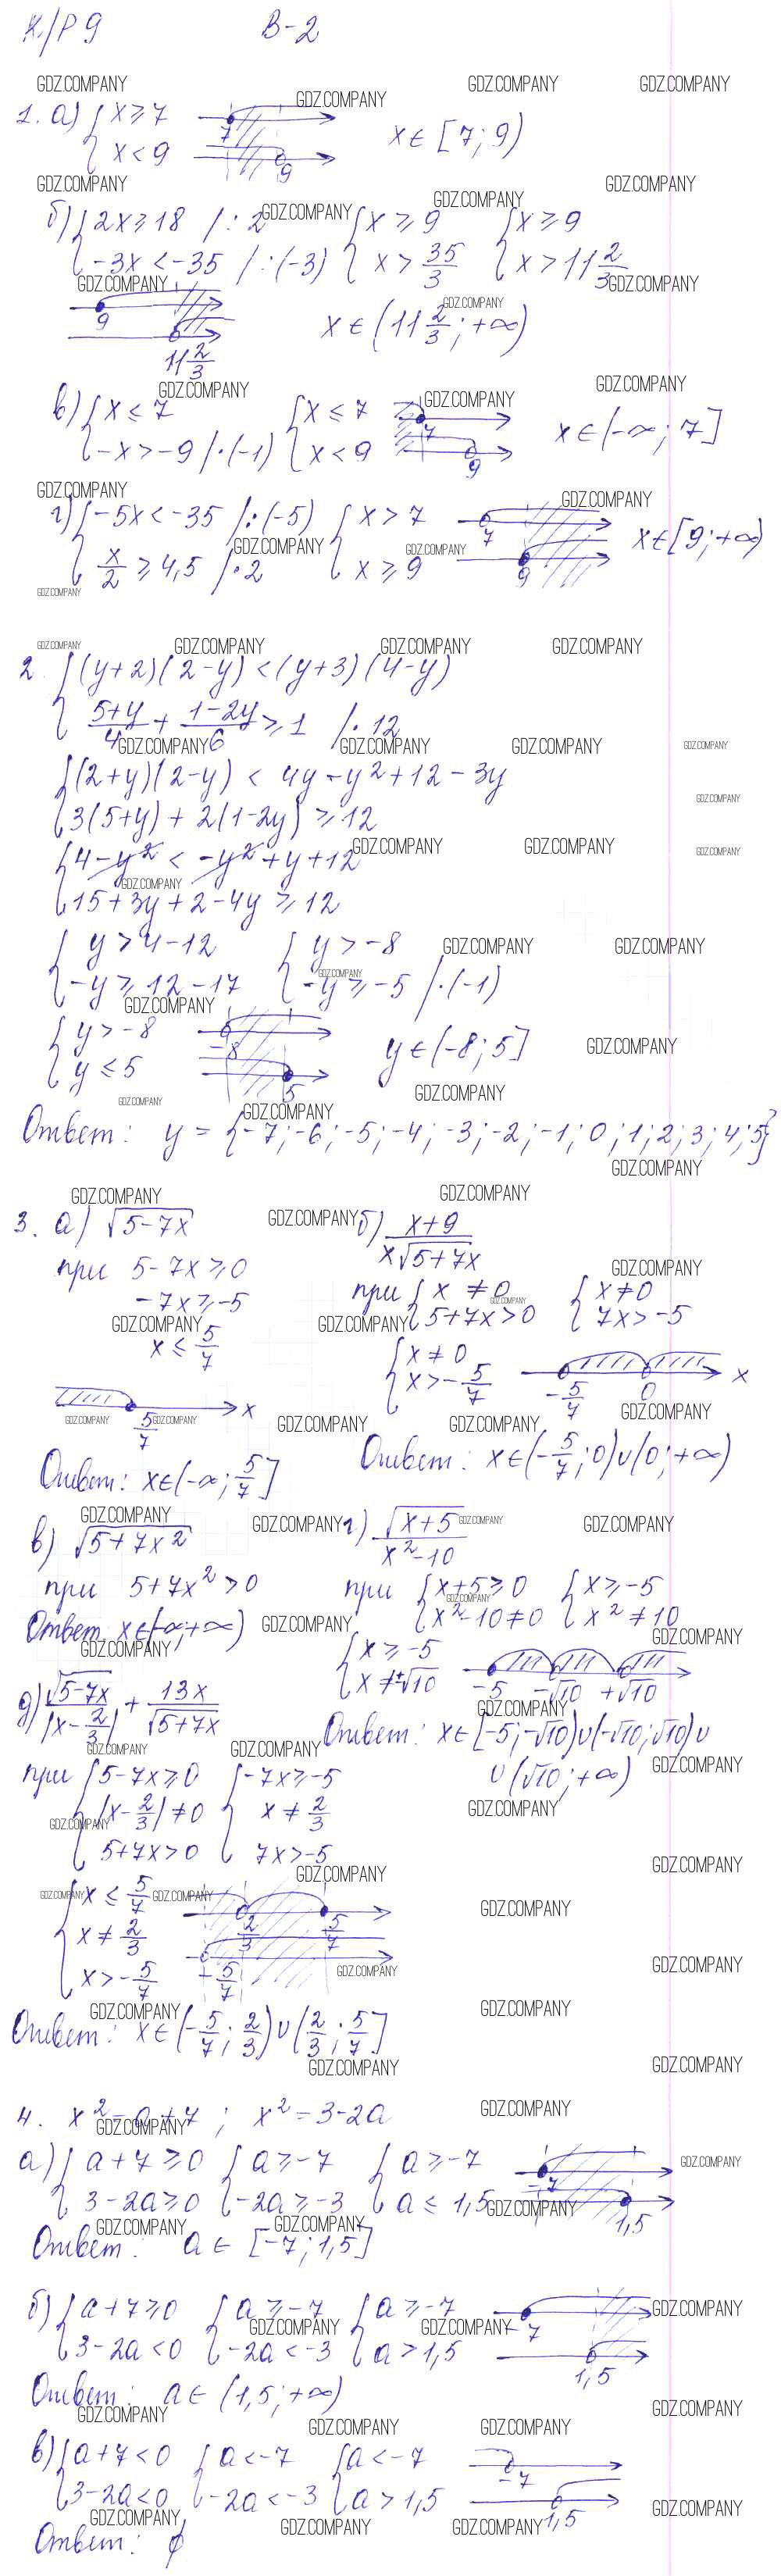 К/Р 9 В-2
1. а) { x ≥ 7 x ∈ [7; 9)
{ x < 9
7
9
б) { 2x ≥ 18 / : 2 { x ≥ 9 { x ≥ 9
{ -3x < -35 / : (-3) { x > 35/3 { x > 11 2/3
9
11 2/3
x ∈ (11 2/3; +∞)
в) { x ≤ 7 { x ≤ 7 x ∈ (-∞; 7]
{ -x > -9 / · (-1) { x < 9
7
9
г) { -5x < -35 / : (-5) { x > 7 x ∈ [9; +∞)
{ x/2 ≥ 4,5 / · 2 { x ≥ 9
7
9
2. { (y+2)(2-y) < (y+3)(4-y)
{ (5+y)/4 + (1-2y)/6 ≥ 1 / · 12
{ (2+y)(2-y) < 4y - y² + 12 - 3y
{ 3(5+y) + 2(1-2y) ≥ 12
{ 4 - y² < -y² + y + 12
{ 15 + 3y + 2 - 4y ≥ 12
{ y > 4-12 { y > -8
{ -y ≥ 12-17 { -y ≥ -5 / · (-1)
{ y > -8 y ∈ (-8; 5]
{ y ≤ 5
-8
5
Ответ: y = {-7; -6; -5; -4; -3; -2; -1; 0; 1; 2; 3; 4; 5}
3. а) √(5-7x)
при 5-7x ≥ 0
-7x ≥ -5
x ≤ 5/7
5/7 x
Ответ: x ∈ (-∞; 5/7]
б) (x+9)/(x√(5+7x))
при { x ≠ 0 { x ≠ 0
{ 5+7x > 0 { 7x > -5
{ x ≠ 0
{ x > -5/7
-5/7 0 x
Ответ: x ∈ (-5/7; 0) ∪ (0; +∞)
в) √(5+7x²)
при 5+7x² > 0
Ответ x ∈ (-∞; +∞)
г) √(x+5)/(x²-10)
при { x+5 ≥ 0 { x ≥ -5
{ x²-10 ≠ 0 { x² ≠ 10
{ x ≥ -5
{ x ≠ ±√10
-5 -√10 +√10
Ответ: x ∈ [-5; -√10) ∪ (-√10; √10) ∪
∪ (√10; +∞)
д) √(5-7x)/|x - 2/3| + 13x/√(5+7x)
при { 5-7x ≥ 0 { -7x ≥ -5
{ |x - 2/3| ≠ 0 { x ≠ 2/3
{ 5+7x > 0 { 7x > -5
{ x ≤ 5/7
{ x ≠ 2/3
{ x > -5/7
2/3 5/7
-5/7
Ответ: x ∈ (-5/7; 2/3) ∪ (2/3; 5/7]
4. x² = a+7; x² = 3-2a
а) { a+7 ≥ 0 { a ≥ -7 { a ≥ -7
{ 3-2a ≥ 0 { -2a ≥ -3 { a ≤ 1,5
-7
1,5
Ответ: a ∈ [-7; 1,5]
б) { a+7 ≥ 0 { a ≥ -7 { a ≥ -7
{ 3-2a < 0 { -2a < -3 { a > 1,5
-7
1,5
Ответ: a ∈ (1,5; +∞)
в) { a+7 < 0 { a < -7 { a < -7
{ 3-2a < 0 { -2a < -3 { a > 1,5
-7
1,5
Ответ: ∅
GDZ.COMPANY